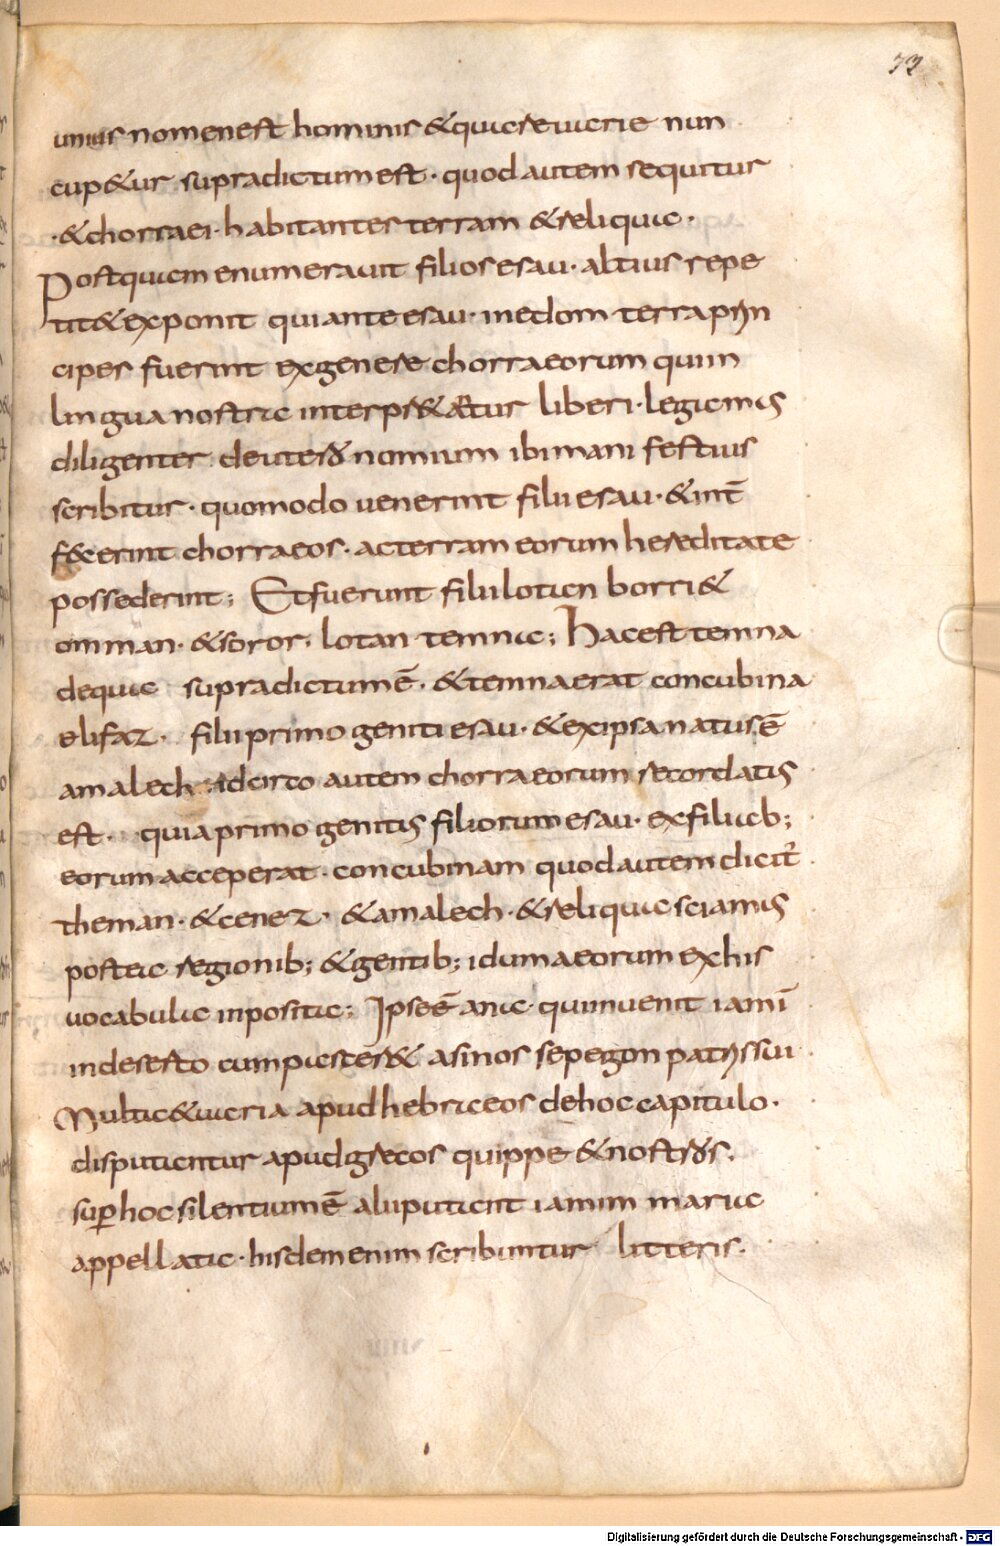 73
unius nomen est hominis & quare uarie nun
cup&ur supradictum est · quod autem sequitur
· & chorraei · habitantes terram & reliqua ·
Postquam enumerauit filios esau · altius repe
tit & exponit qui ante esau · in edom terra prin
cipes fuerint ex genere chorraeorum qui in
lingua nostra interpr&&atur liberi · legamus
diligenter deuteronomium ibi manifestius
scribitur · quomodo uenerint filii esau · & int̄
f&cerint chorraeos · ac terram eorum hereditate
possederint; Et fuerunt filii lotan horri &
omman · & soror · lotan temna; Haec est temna
de qua supradictum ē · & temna erat concubina
elifaz · filii primogeniti esau · & ex ipsa natus ē
amalech · idcirco autem chorraeorum recordatus
est · quia primogenitus filiorum esau · ex filiab;
eorum acceperat · concubinam quod autem dicit̄
theman · & cenez · & amalech · & reliqua sciamus
postea regionib; & gentib; idumaeorum ex his
uocabula inposita; Ipse ē ana · qui inuenit iamī
in deserto cum pascer& asinos sepegon patris sui
Multa & uaria apud hebraeos de hoc capitulo ·
disputantur apud grecos quippe & nostros ·
sup̄ hoc silentium ē alii putant iamim maria
appellata · hisdem enim scribuntur litteris ·
Digitalisierung gefördert durch die Deutsche Forschungsgemeinschaft - DFG